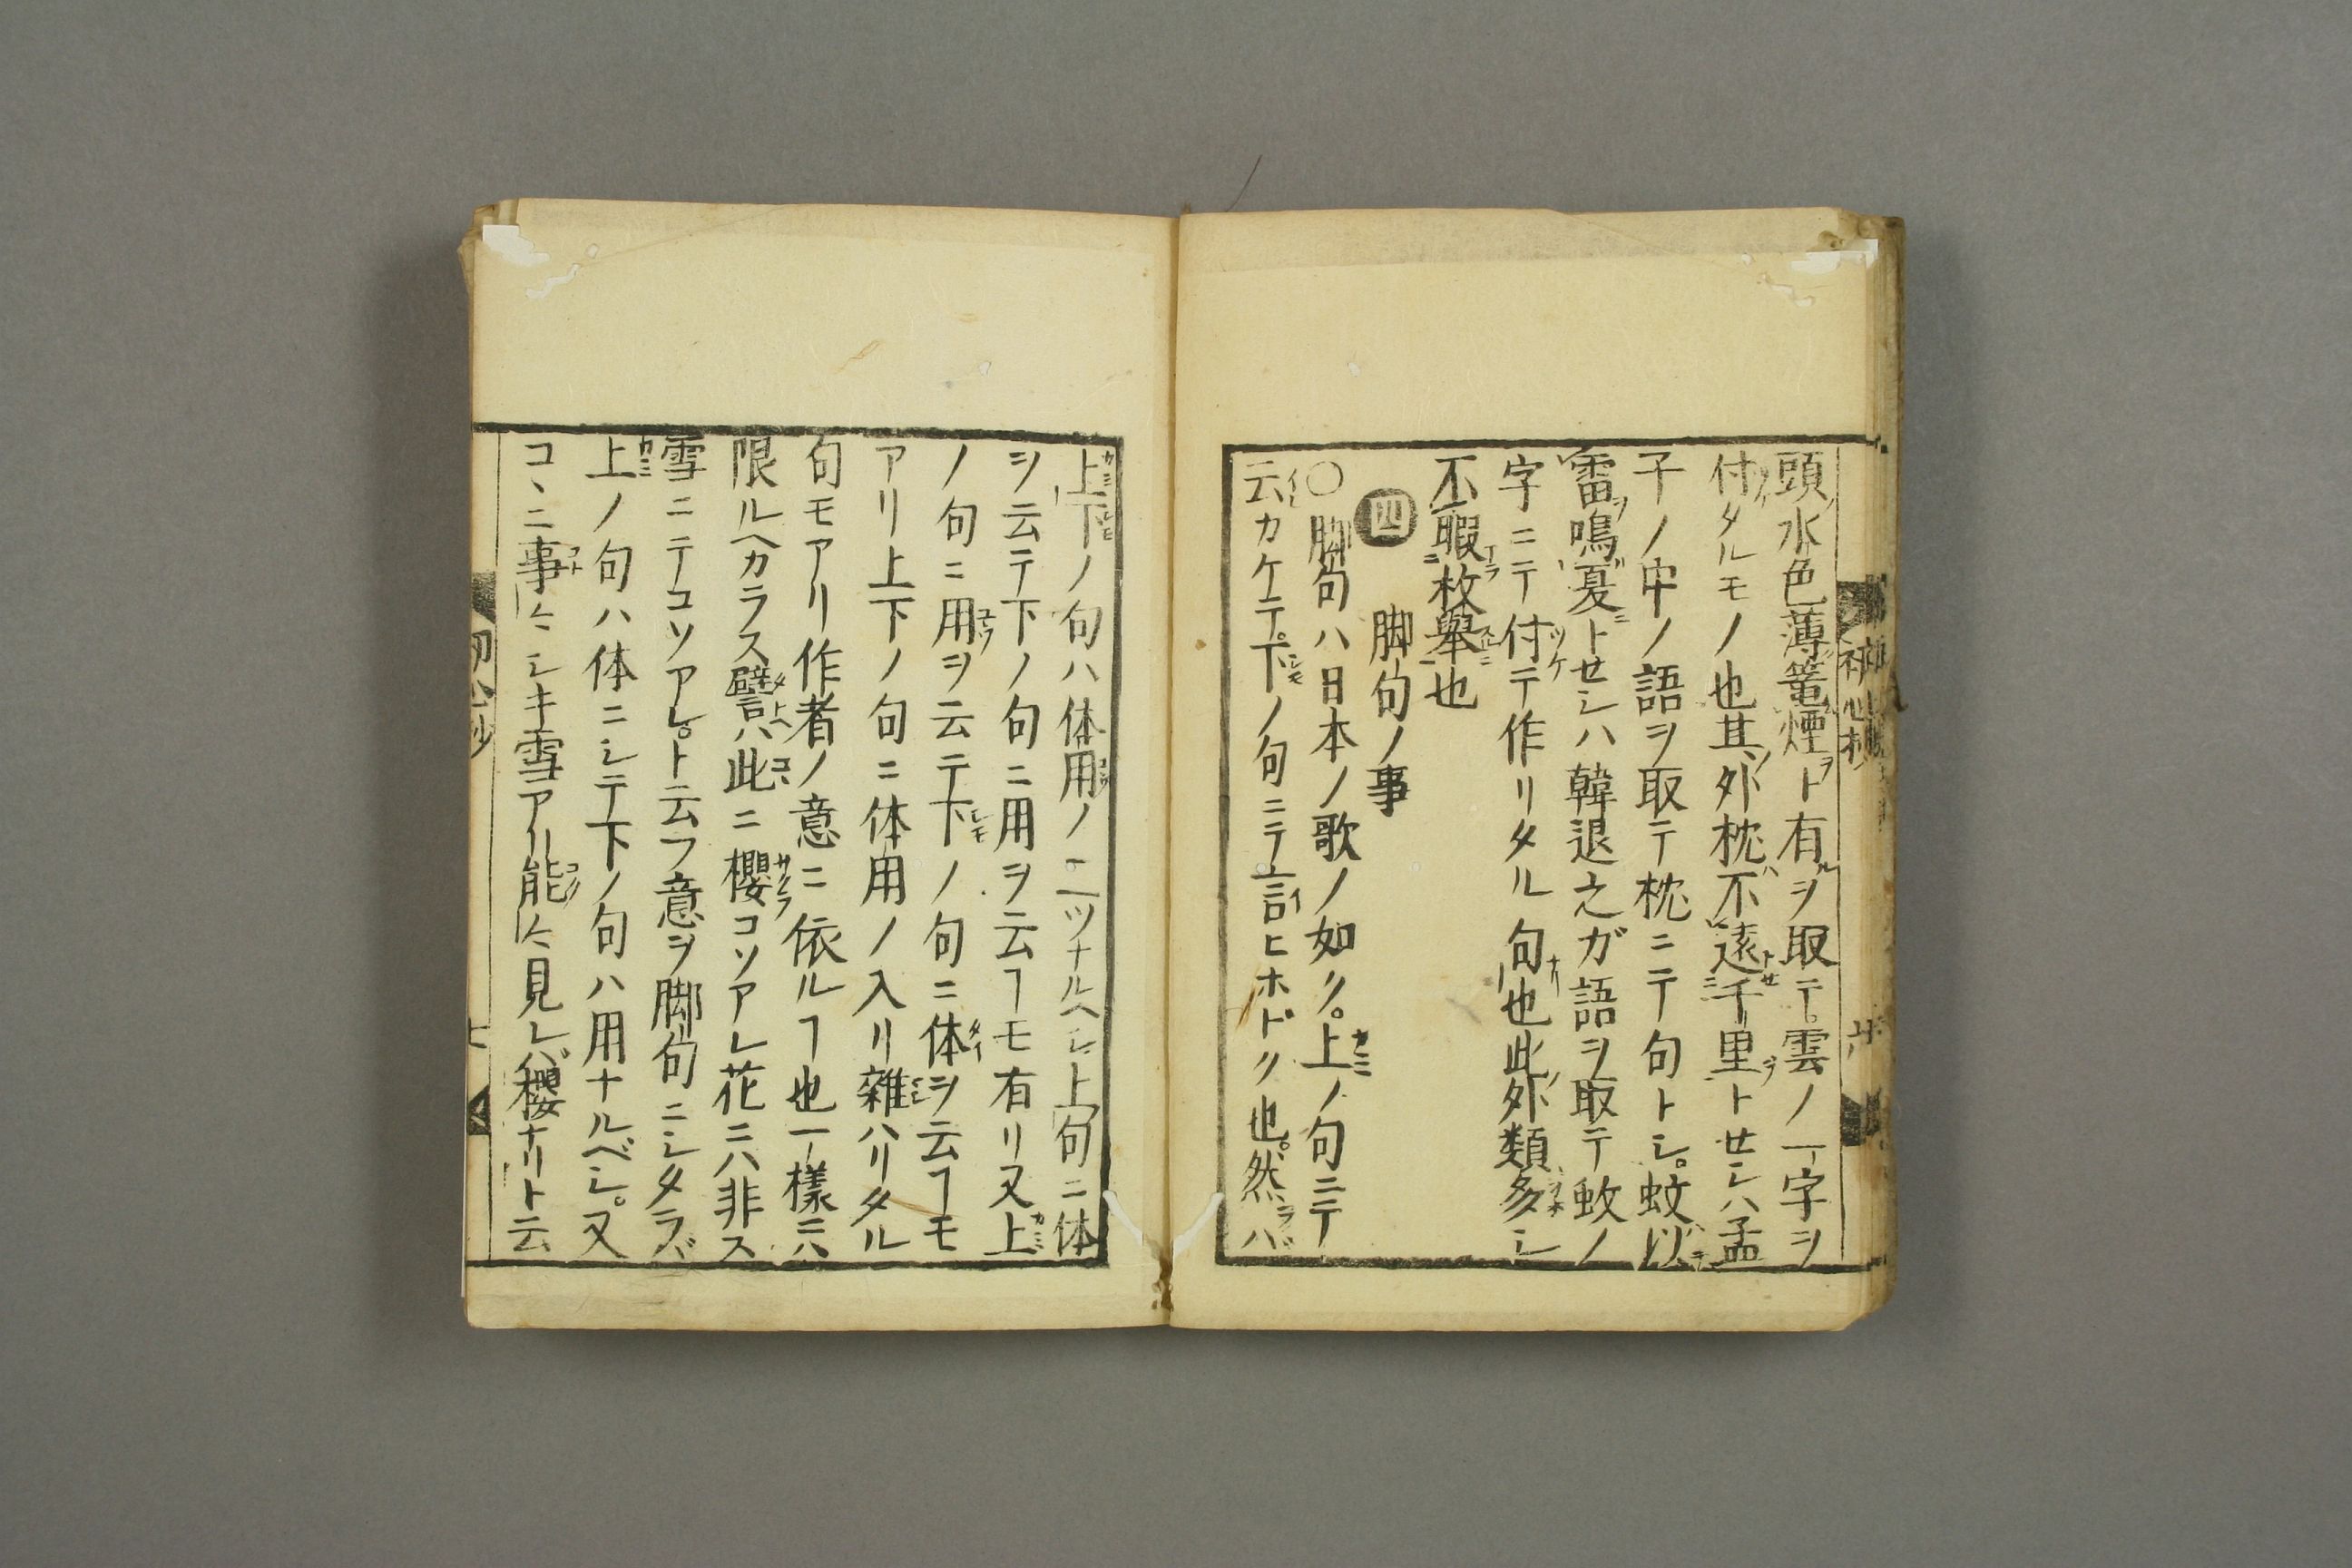 頭水色薄篭煙ト有ヲ取テ雲ノ一字ヲ
付タルモノ也其外枕不遠千里トセシハ孟
子ノ中ノ語ヲ取テ枕ニテ句トシ。蚊以
雷鳴憂トセシハ韓退之ガ語ヲ取テ蚊ノ
字ニテ付テ作リタル句也此外類多シ
不暇枚舉也
四 脚句ノ事
○脚句ハ日本ノ歌ノ如ク。上ノ句ニテ
云カケテ。下ノ句ニテ言ヒホドク也。然ハ
上下ノ句ハ体用ノ二ツナルヘシ上句ニ体
ヲ云テ下ノ句ニ用ヲ云ヿモ有リ又上
ノ句ニ用ヲ云テ下ノ句ニ体ヲ云ヿモ
アリ上下ノ句ニ体用ノ入リ雜ハリタル
句モアリ作者ノ意ニ依ルヿ也一樣ニハ
限ルヘカラス譬ハ此ニ櫻コソアレ花ニハ非ス
雪ニテコソアレ。ト云フ意ヲ脚句ニシタラバ
上ノ句ハ体ニシテ下ノ句ハ用ナルベシ。又
コヽニ事〻シキ雪アリ能〻見レバ櫻ナリト云
初心抄